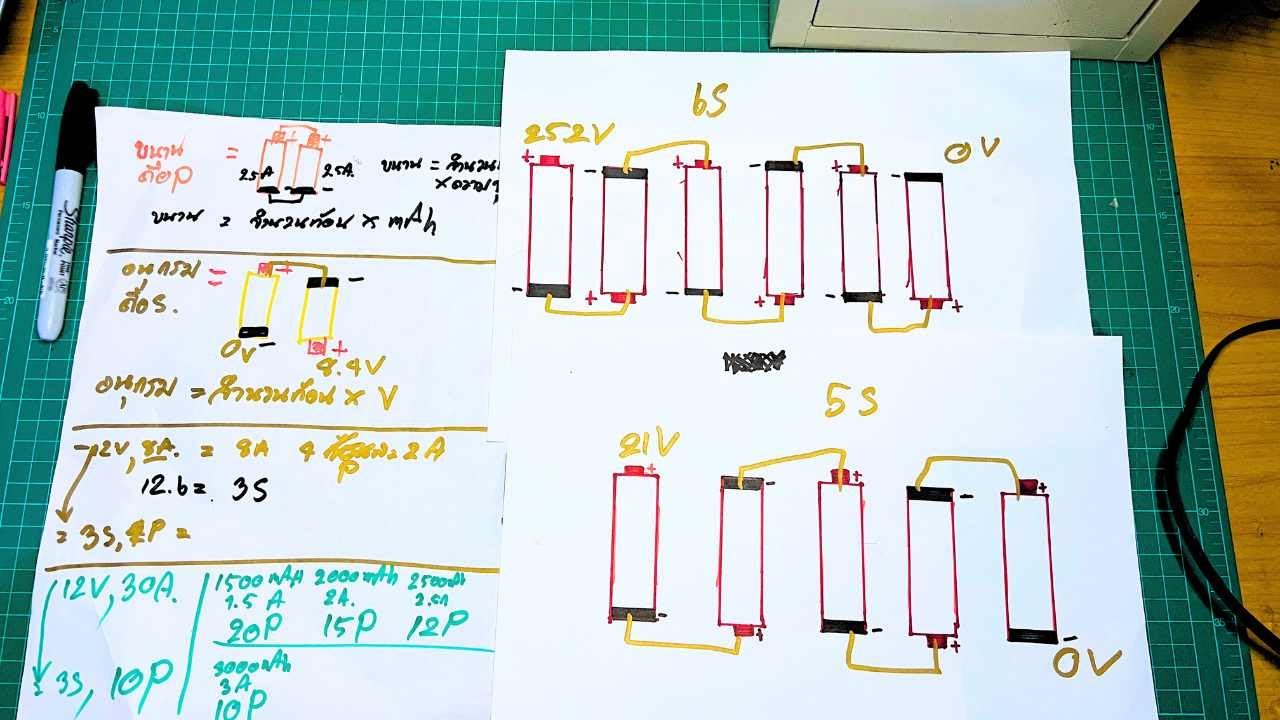 ขนาน
คือP
=
+ +
2.5A 2.5A.
-
ขนาน = จำนวนก้อน × mAh
ขนาน = จำนวน
อนุกรม =
คือS.
+ -
0V - +
8.4V
อนุกรม = จำนวนก้อน × V
12V, 8A. = 8A 4 P = 2A
12.6 = 3S
= 3S, 4P =
12V, 30A.
= 3S, 10P
1500mAH 2000mAh 2500mAh
1.5A 2A. 2.5A
20P 15P 12P
3000mAh
3A
10P
6S
25.2V 0V
+ - + - + -
- + - + - +
5S
21V
+ - + - +
- + - + -
0V
Sharpie